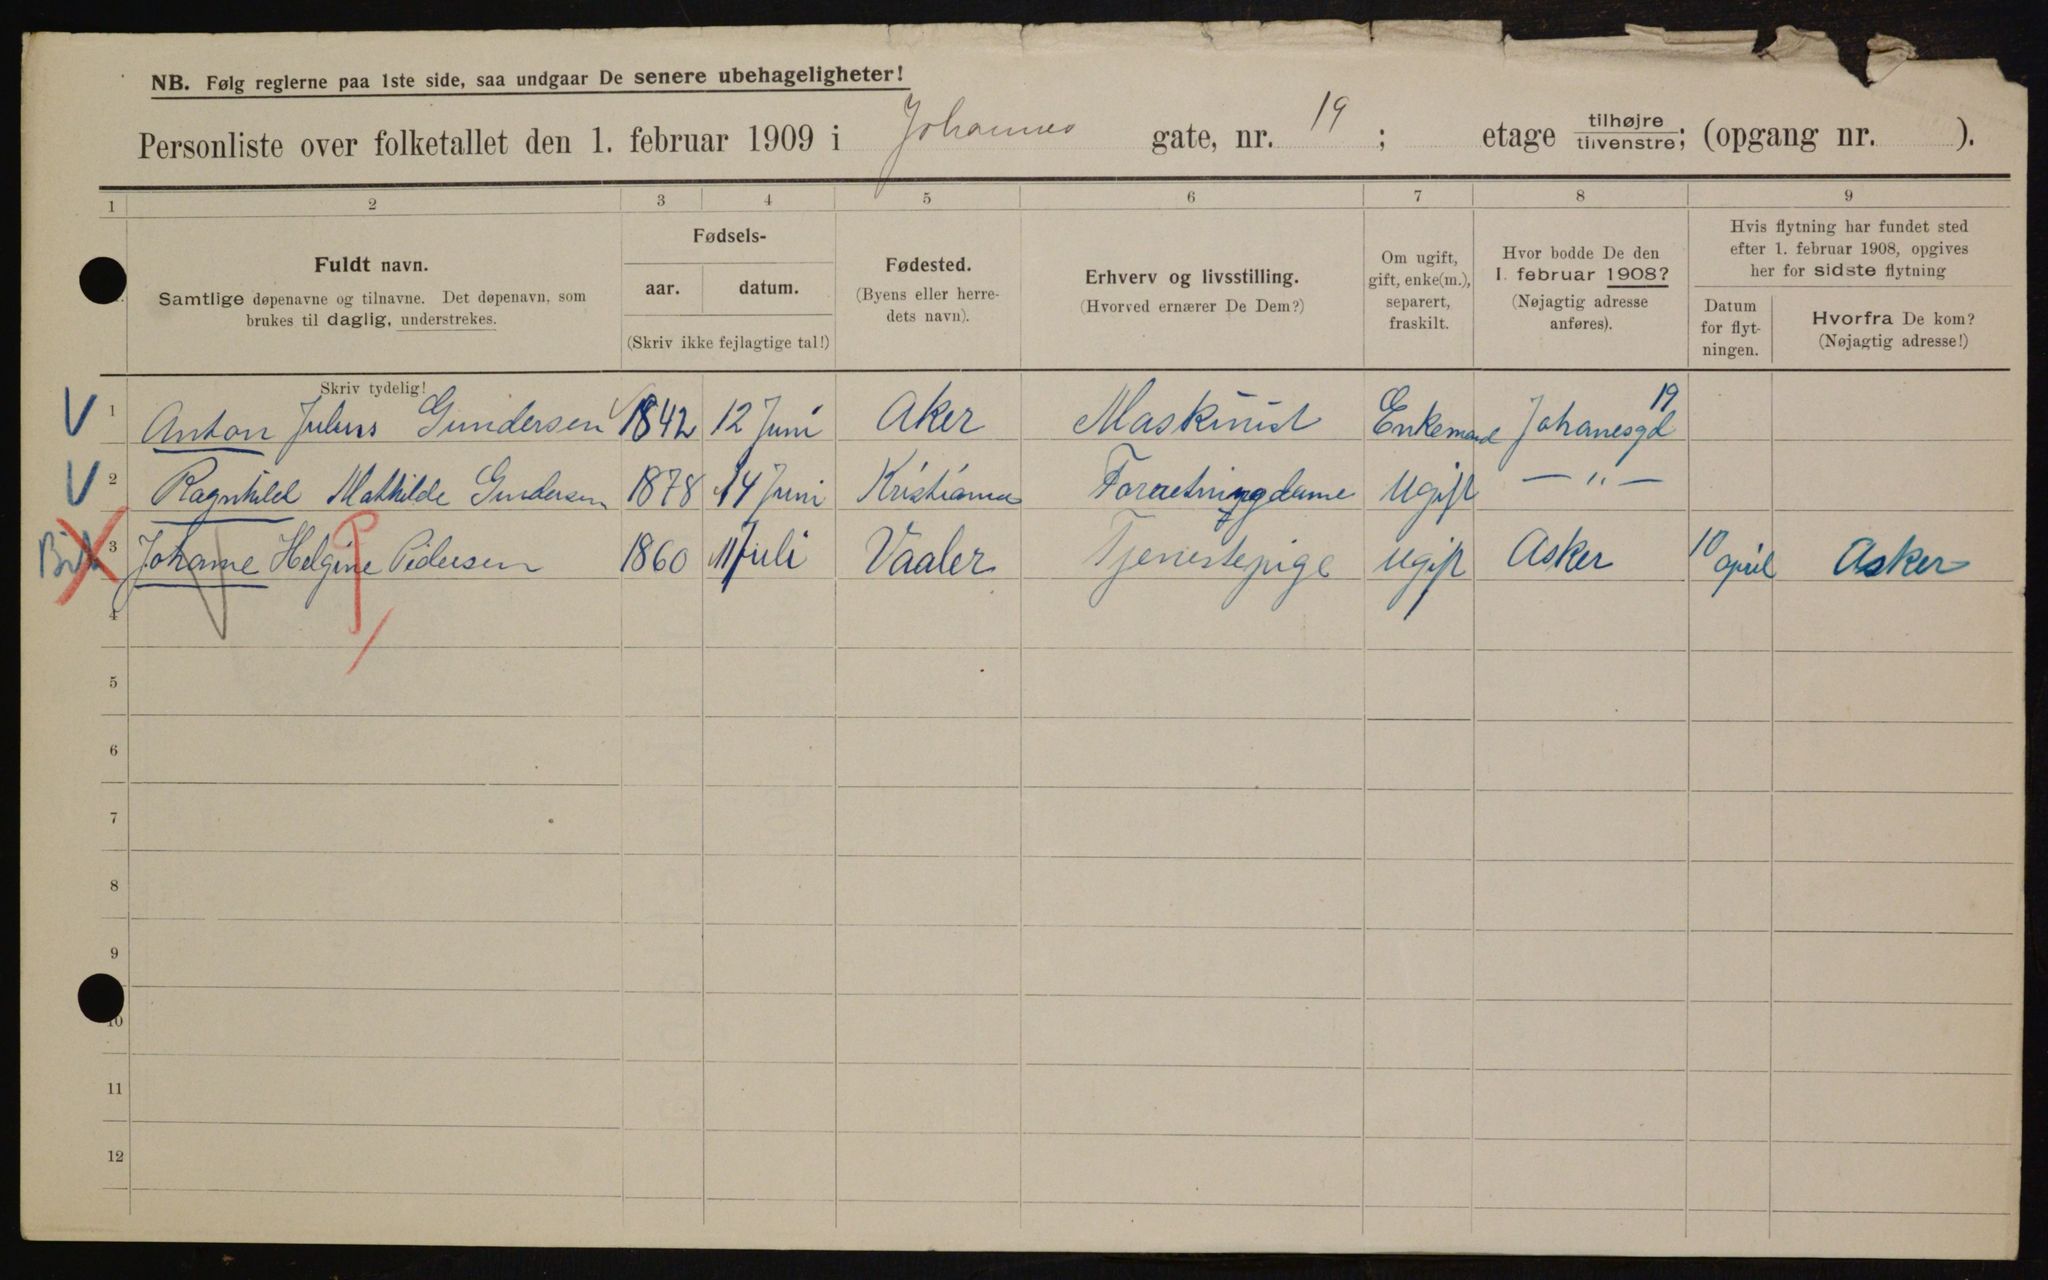 NB. Følg reglerne paa 1ste side, saa undgaar De senere ubehageligheter!
Personliste over folketallet den 1. februar 1909 i Johannes gate, nr. 19 ; etage tilhøjre/tilvenstre; (opgang nr. ).
1 2 3 4 5 6 7 8 9
Fuldt navn.
Samtlige døpenavne og tilnavne. Det døpenavn, som
brukes til daglig, understrekes.
Skriv tydelig!
Fødsels-
aar. datum.
(Skriv ikke fejlagtige tal!)
Fødested.
(Byens eller herre-
dets navn).
Erhverv og livsstilling.
(Hvorved ernærer De Dem?)
Om ugift,
gift, enke(m.),
separert,
fraskilt.
Hvor bodde De den
1. februar 1908?
(Nøjagtig adresse
anføres).
Hvis flytning har fundet sted
efter 1. februar 1908, opgives
her for sidste flytning
Datum
for flyt-
ningen.
Hvorfra De kom?
(Nøjagtig adresse!)
V 1 Anton Julius Gundersen 1842 12 Juni Aker Maskinist Enkemand Johanesgd 19
V 2 Ragnhild Mathilde Gundersen 1878 14 Juni Kristiania Forretningdame Ugift — " —
3 Johanne Helgine Pedersen 1860 11 Juli Vaaler Tjenestepige Ugift Asker 10 april Asker
P
4
5
6
7
8
9
10
11
12